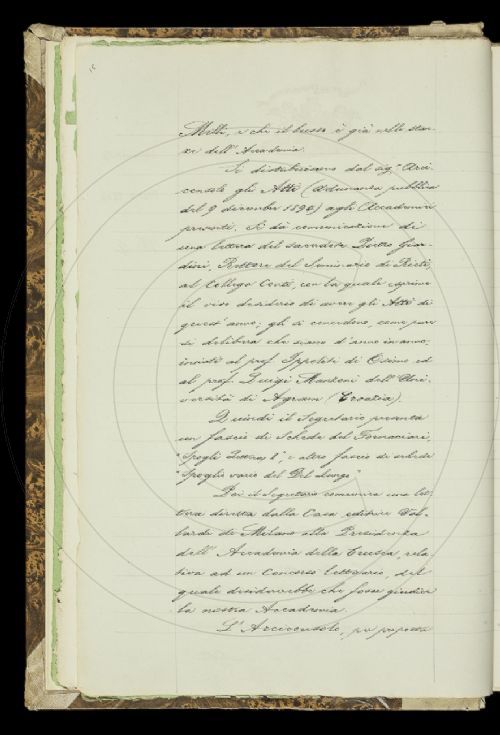 Milli, e che il busto è già nelle stan-
ze dell'Accademia.
Si distribuiscono dal sig. Arci-
consolo gli Atti (Adunanza pubblica
del 9 dicembre 1890) agli Accademici
presenti. Si dà comunicazione di
una lettera del sacerdote Pietro
Rettore del Seminario di
al Collega Conti, con la quale esprime
il vivo desiderio di avere gli Atti di
quest'anno; gli si concedono, come pure
si delibera che siano d'anno in anno,
inviati al prof. Ippoliti di Osimo ed
al prof. Luigi Manzoni dell'Uni-
versità di Agram (Croazia).
Quindi il Segretario presenta
un fascio di Schede del Fornaciari,
"Spogli e altro fascio di schede
"Spoglio vario del Del Lungo"
Poi il Segretario comunica una let-
tera diretta dalla Casa editrice Val-
lardi di Milano alla Presidenza
dell'Accademia della Crusca, rela-
tiva ad un Concorso letterario, del
quale desidererebbe che fosse giudice
la nostra Accademia.
L'Arciconsolo, su proposta